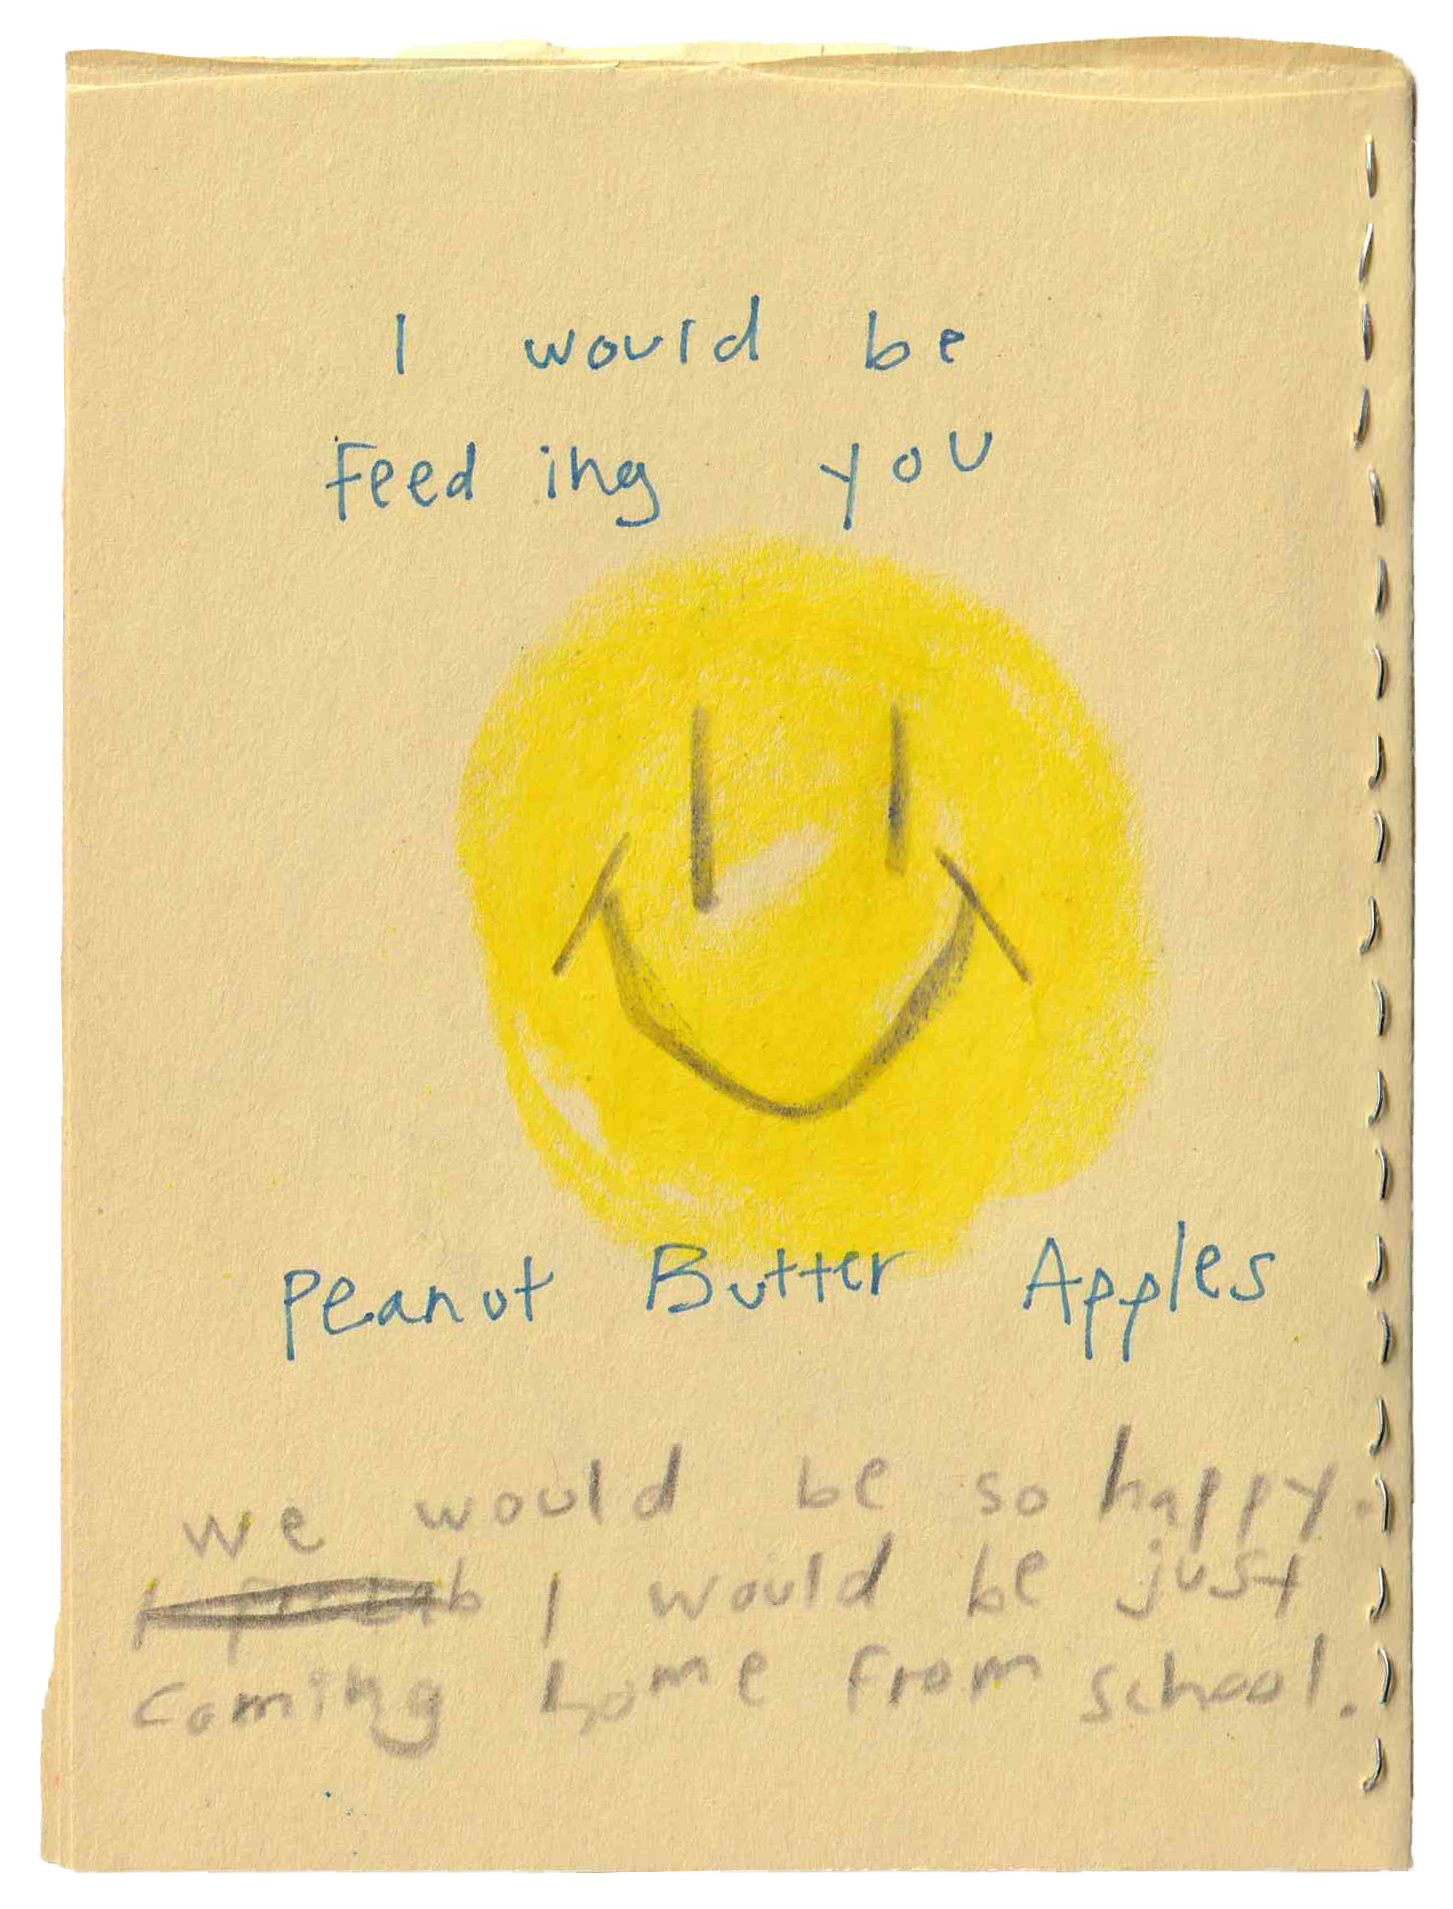 I would be
Feeding you
Peanut Butter Apples
We would be so happy.
I would be just
coming home from school.